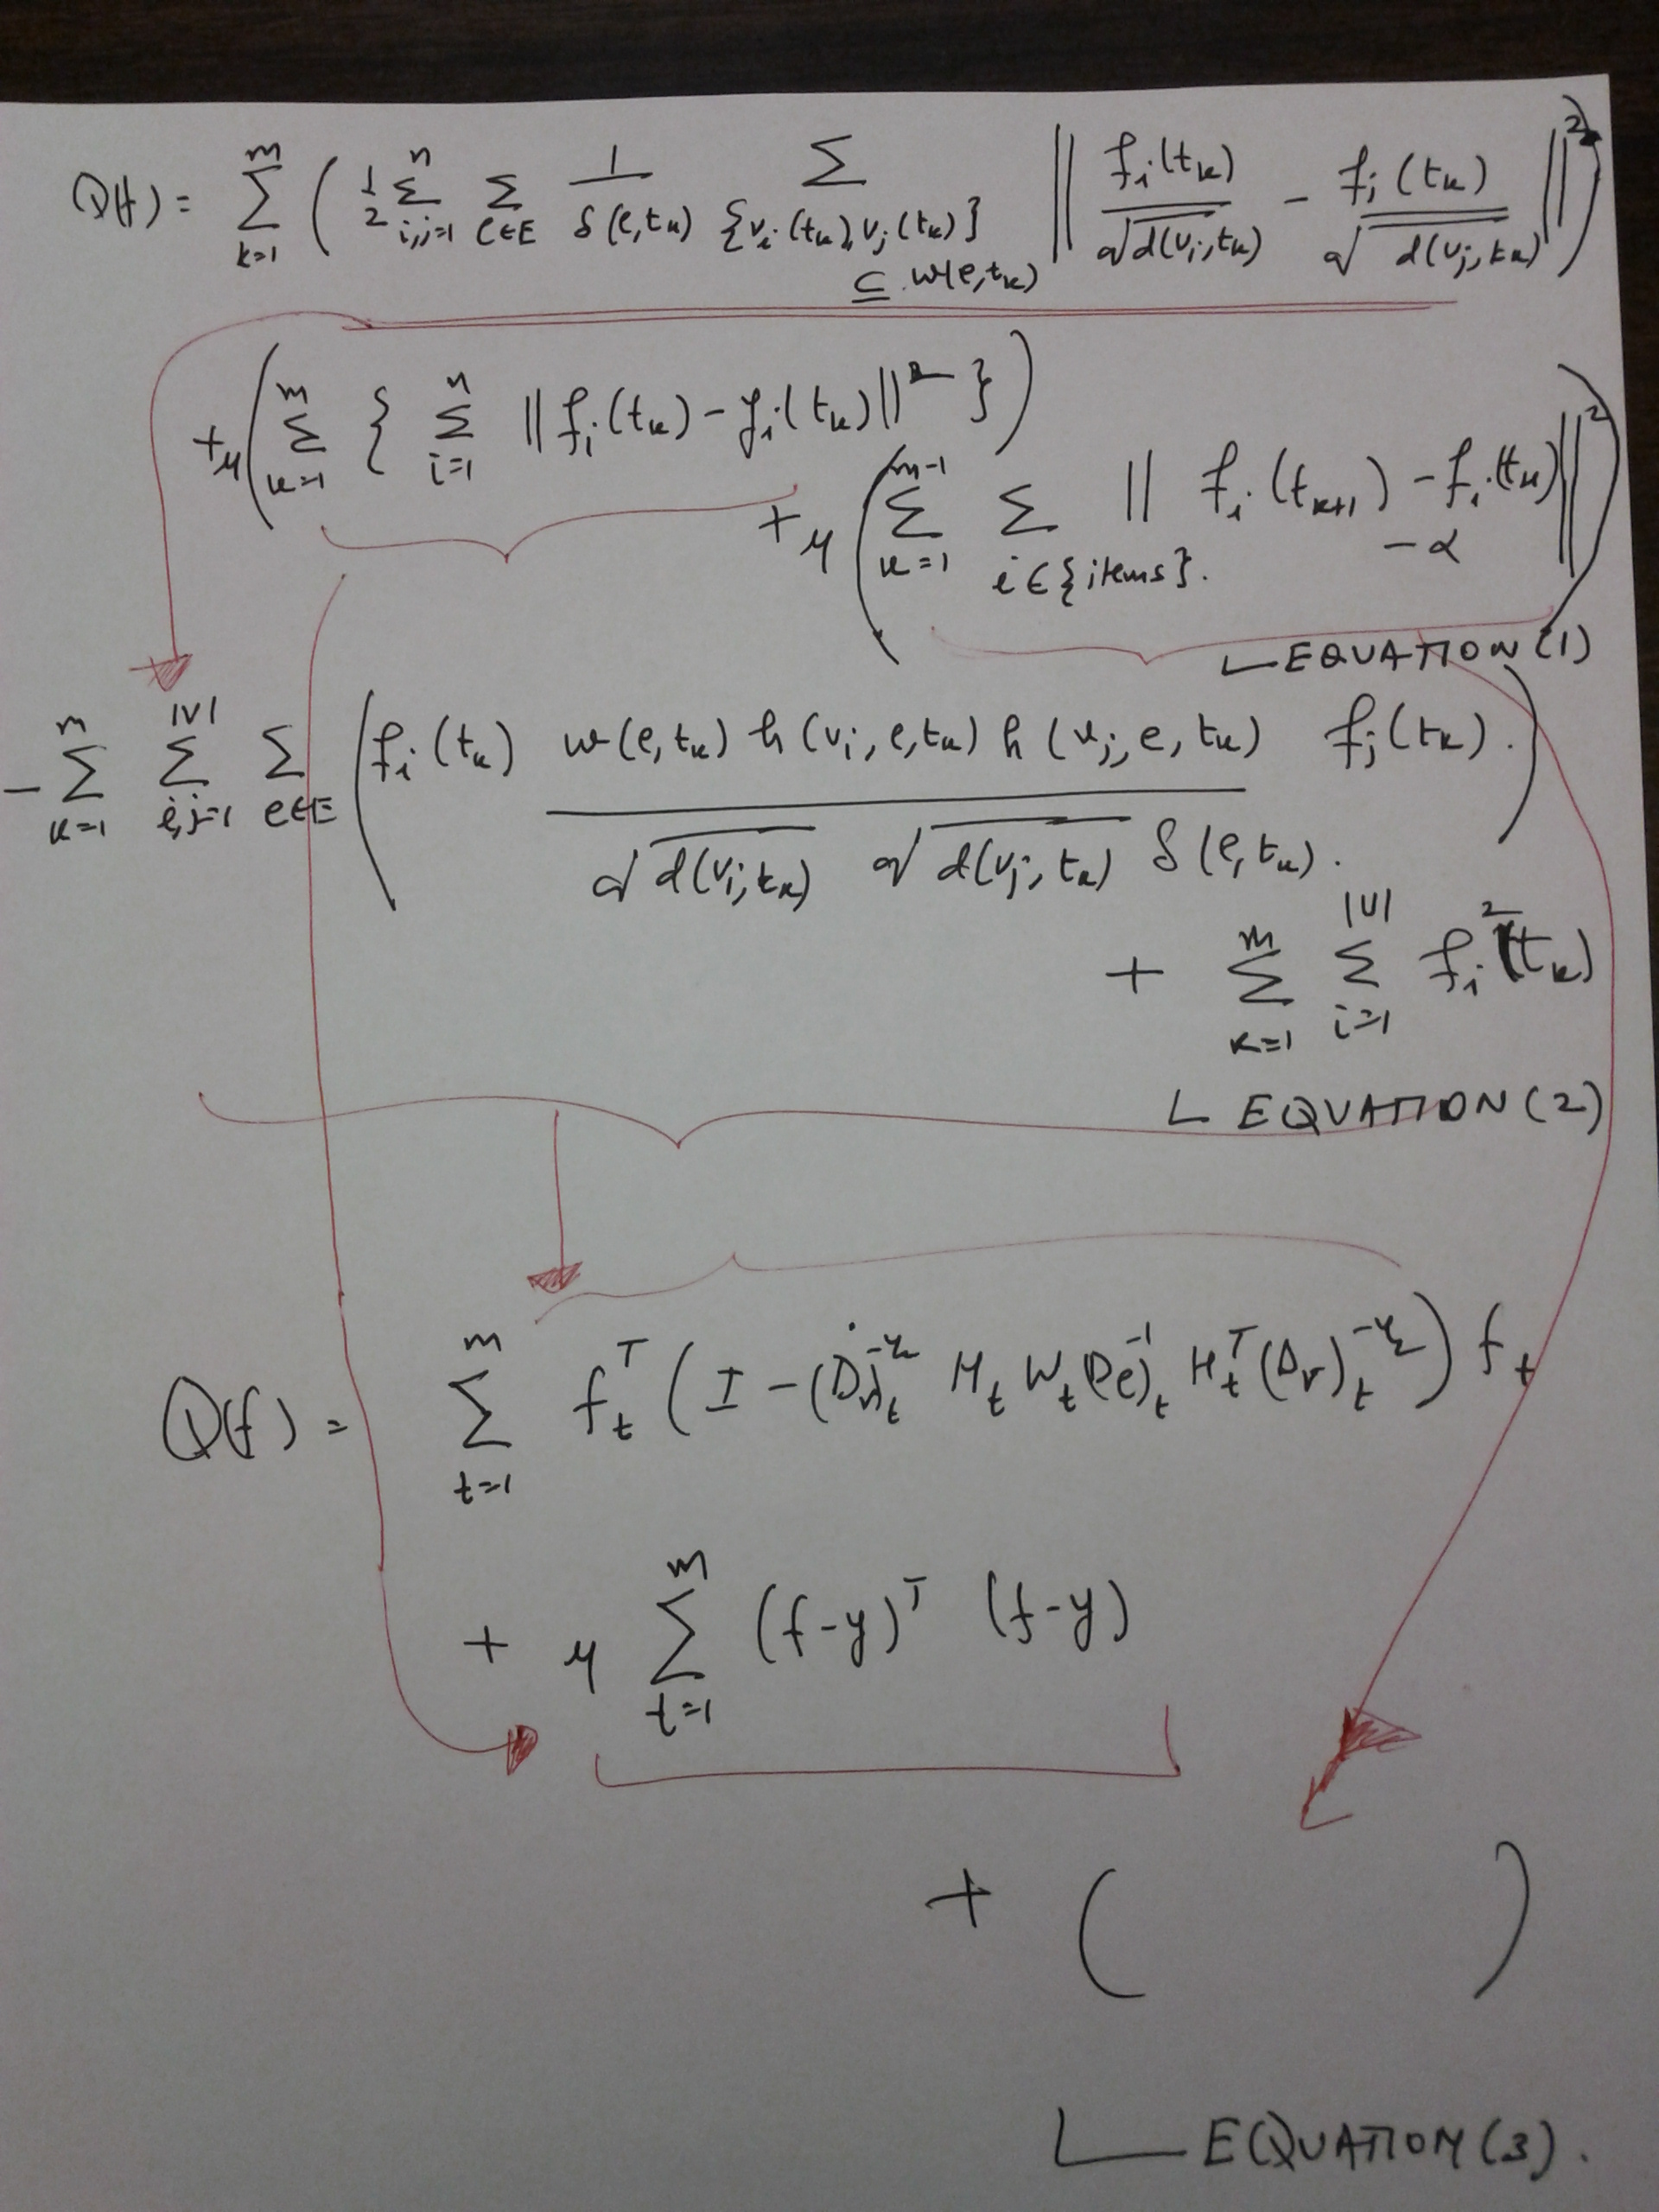 Q(f) = \sum_{k=1}^{m} ( \frac{1}{2} \sum_{i,j=1}^{n} \sum_{e \in E} \frac{1}{\delta(e,t_k)} \sum_{\{v_i(t_k), v_j(t_k)\} \subseteq w(e,t_k)} || \frac{f_i(t_k)}{\sqrt{d(v_i,t_k)}} - \frac{f_j(t_k)}{\sqrt{d(v_j,t_k)}} ||^2 )
+ μ ( \sum_{k=1}^{m} \{ \sum_{i=1}^{n} || f_i(t_k) - y_i(t_k) ||^2 \} )
+ μ ( \sum_{k=1}^{m-1} \sum_{i \in \{items\}.} || f_i(t_{k+1}) - f_i(t_k) - α ||^2 )
EQUATION (1)
- \sum_{k=1}^{m} \sum_{i,j=1}^{|V|} \sum_{e \in E} ( f_i(t_k) \frac{w(e,t_k) h(v_i,e,t_k) h(v_j,e,t_k)}{\sqrt{d(v_i,t_k)} \sqrt{d(v_j,t_k)} \delta(e,t_k).} f_j(t_k). )
+ \sum_{k=1}^{m} \sum_{i=1}^{|V|} f_i^2(t_k)
EQUATION (2)
Q(f) = \sum_{t=1}^{m} f_t^T ( I - (D_v)_t^{-1/2} H_t W_t (De)_t^{-1} H_t^T (D_v)_t^{-1/2} ) f_t
+ μ \sum_{t=1}^{m} (f-y)^T (f-y)
+ ( )
EQUATION (3).